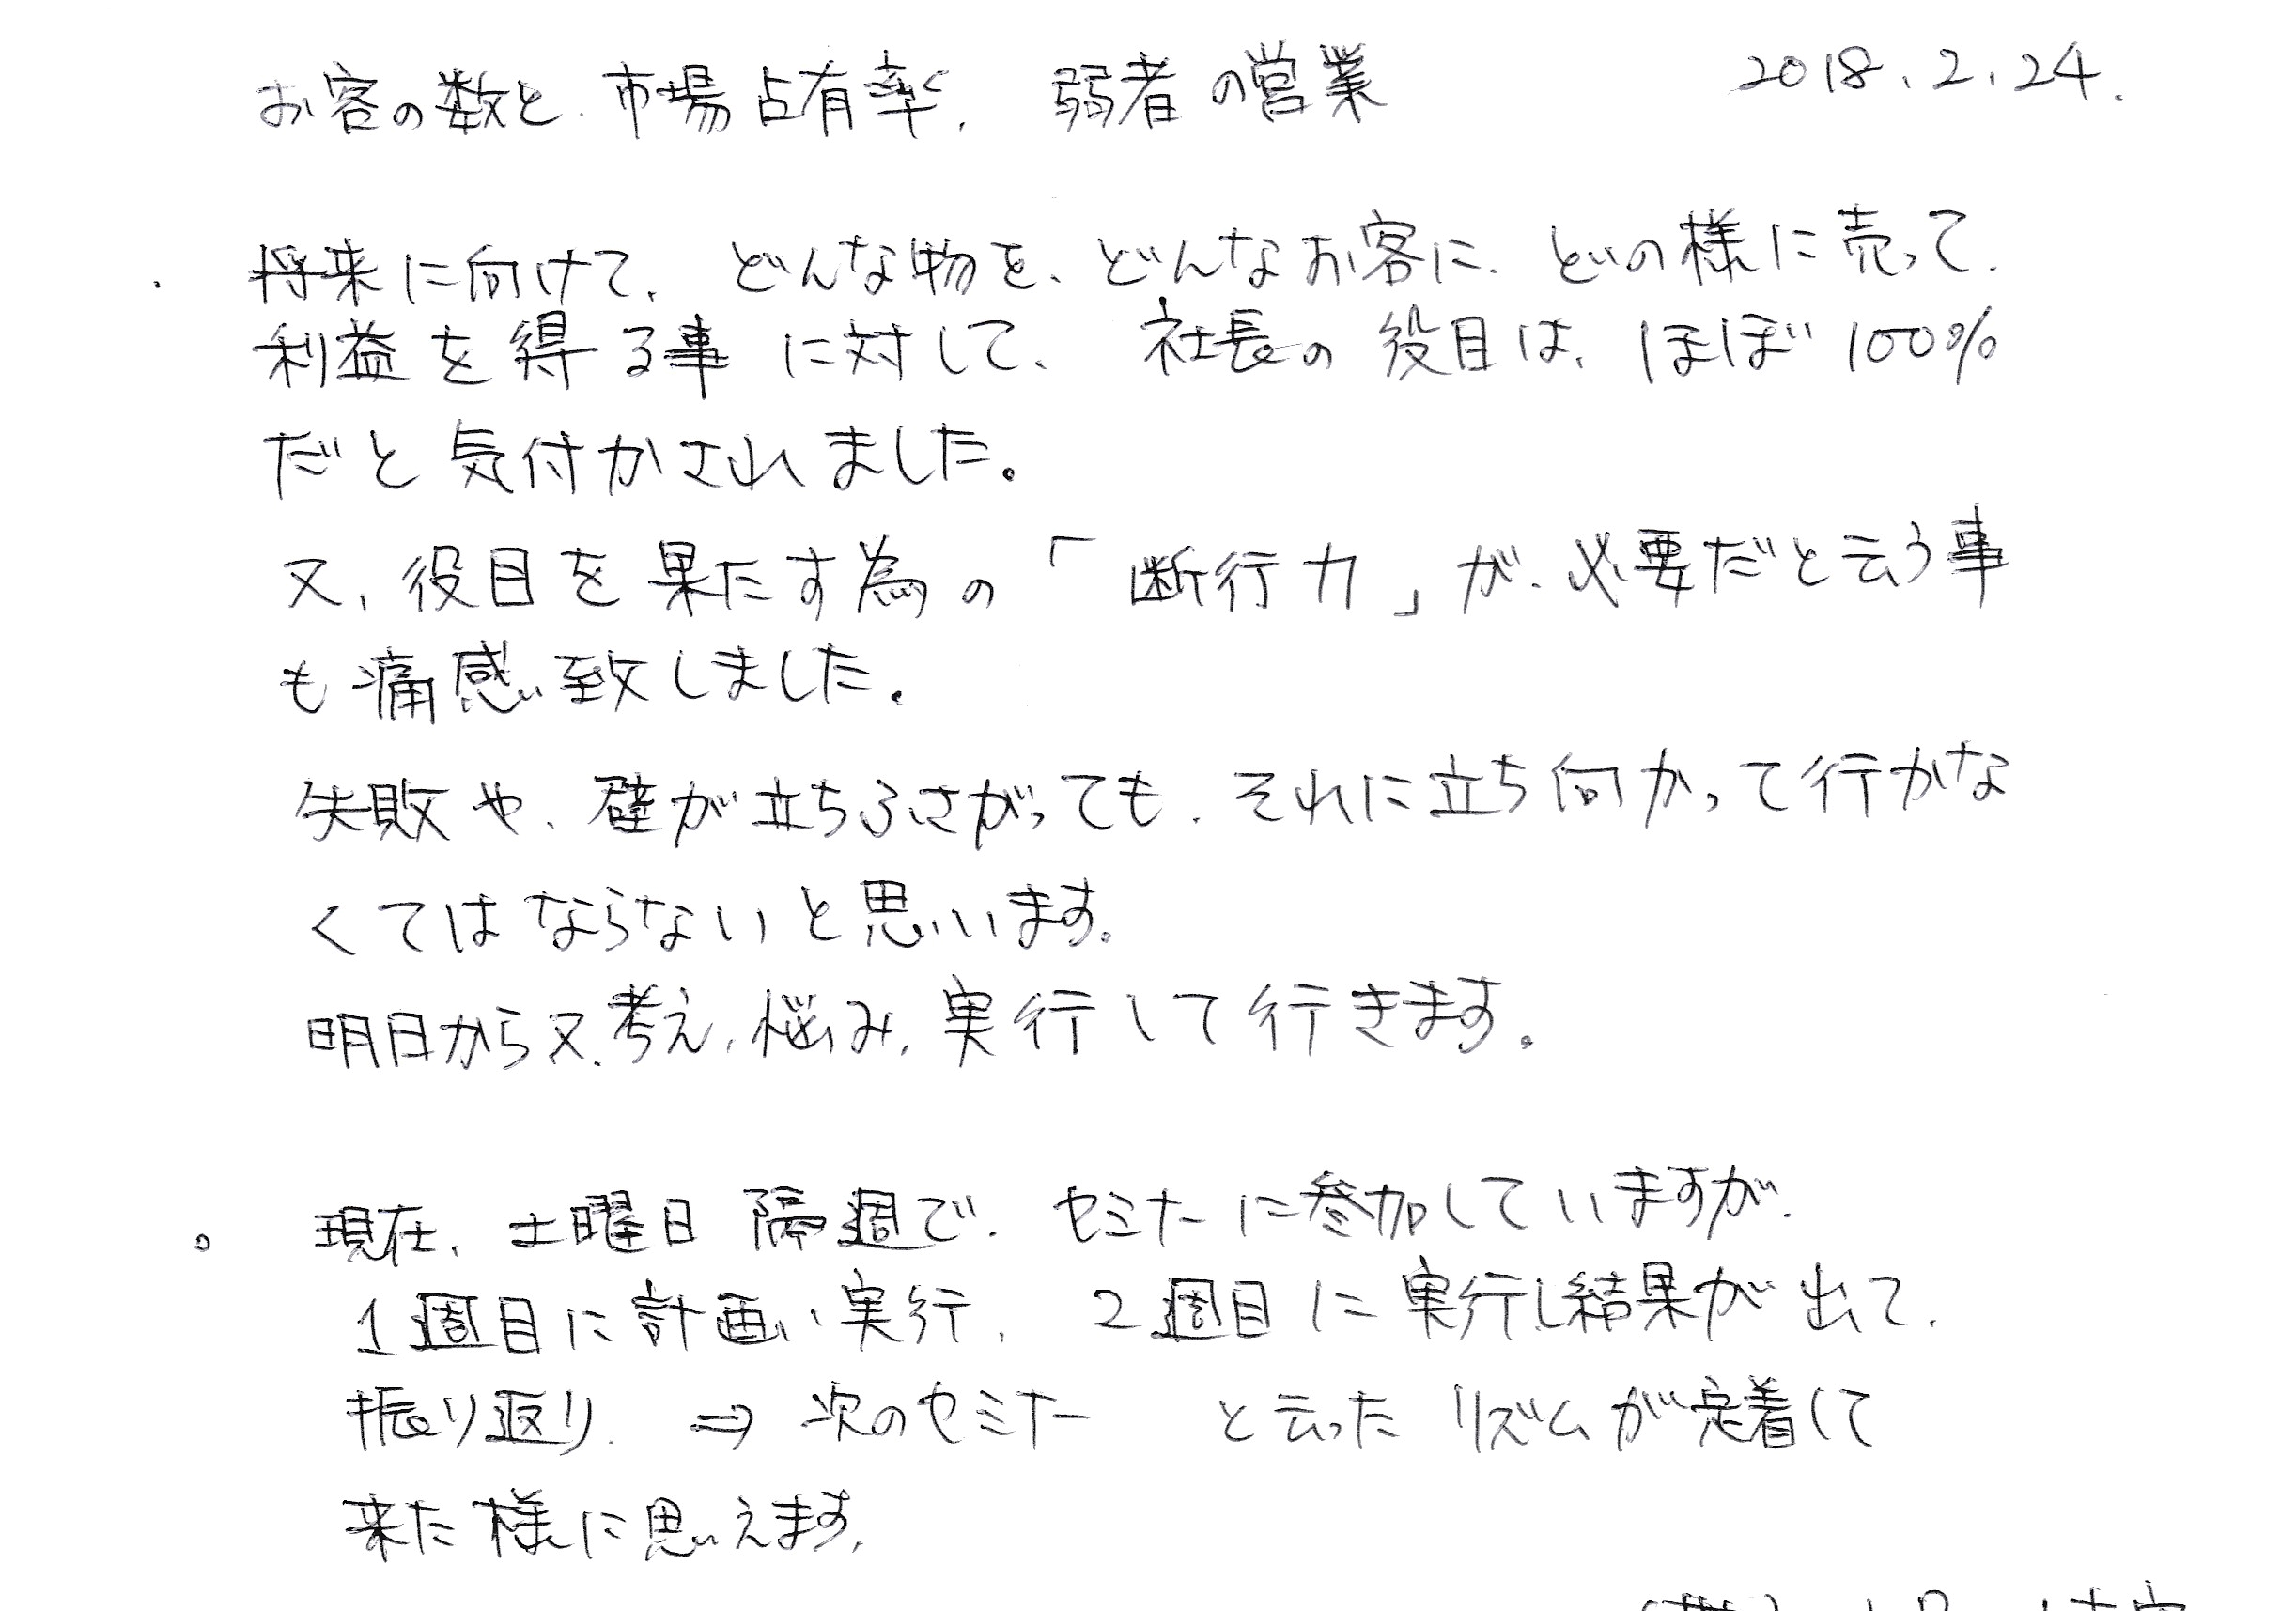 お客の数と、市場占有率、 弱者の営業 2018.2.24.
・ 将来に向けて、どんな物を、どんなお客に、どの様に売って、
利益を得る事に対して、社長の役目は、ほぼ100%
だと気付かされました。
又、役目を果たす為の「断行力」が、必要だと云う事
も痛感致しました。
失敗や、壁が立ちふさがっても、それに立ち向かって行かな
くてはならないと思います。
明日から又、考え、悩み、実行して行きます。
。 現在、土曜日隔週で、セミナーに参加していますが、
1週目に計画、実行、 2週目に実行し結果が出て、
振り返り、 ⇒ 次のセミナー と云ったリズムが定着して
来た様に思えます。